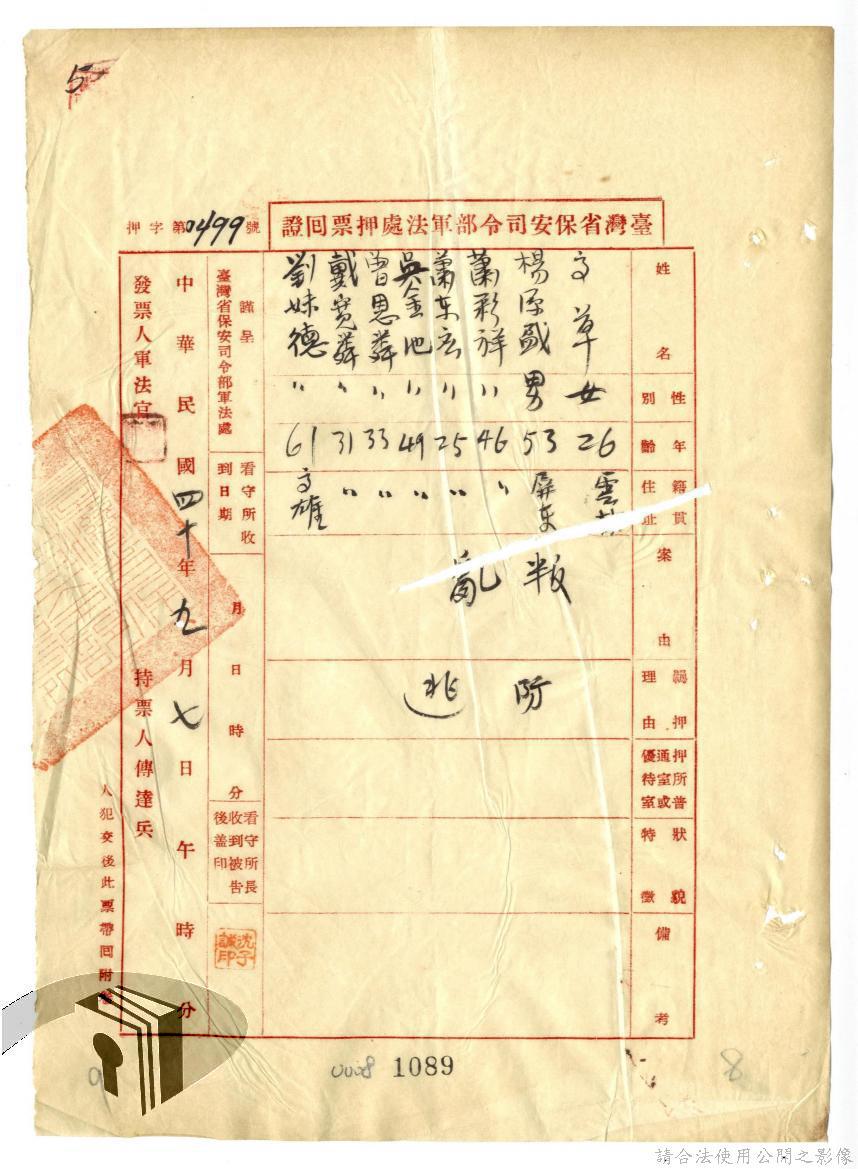 5
臺灣省保安司令部軍法處押票回證
押字第0499號
姓名
高草
楊深盛
蕭彩祥
蕭東宏
吳金池
曾思舜
戴寬舜
劉妹德
性別
女
男
〃
〃
〃
〃
〃
〃
年齡
26
53
46
25
49
33
31
61
籍貫住址
雲林
屏東
〃
〃
〃
〃
〃
高雄
案由
叛亂
羈押理由
防逃
押所普通室或優待室
狀貌特徵
備考
謹呈
臺灣省保安司令部軍法處
看守所收到日期
月日時分
看守所長收到被告後蓋印
沈子誠印
中華民國四十年九月七日午時分
發票人軍法官
持票人傳達兵
人犯交後此票帶回附卷
0008 1089
8
9
請合法使用公開之影像